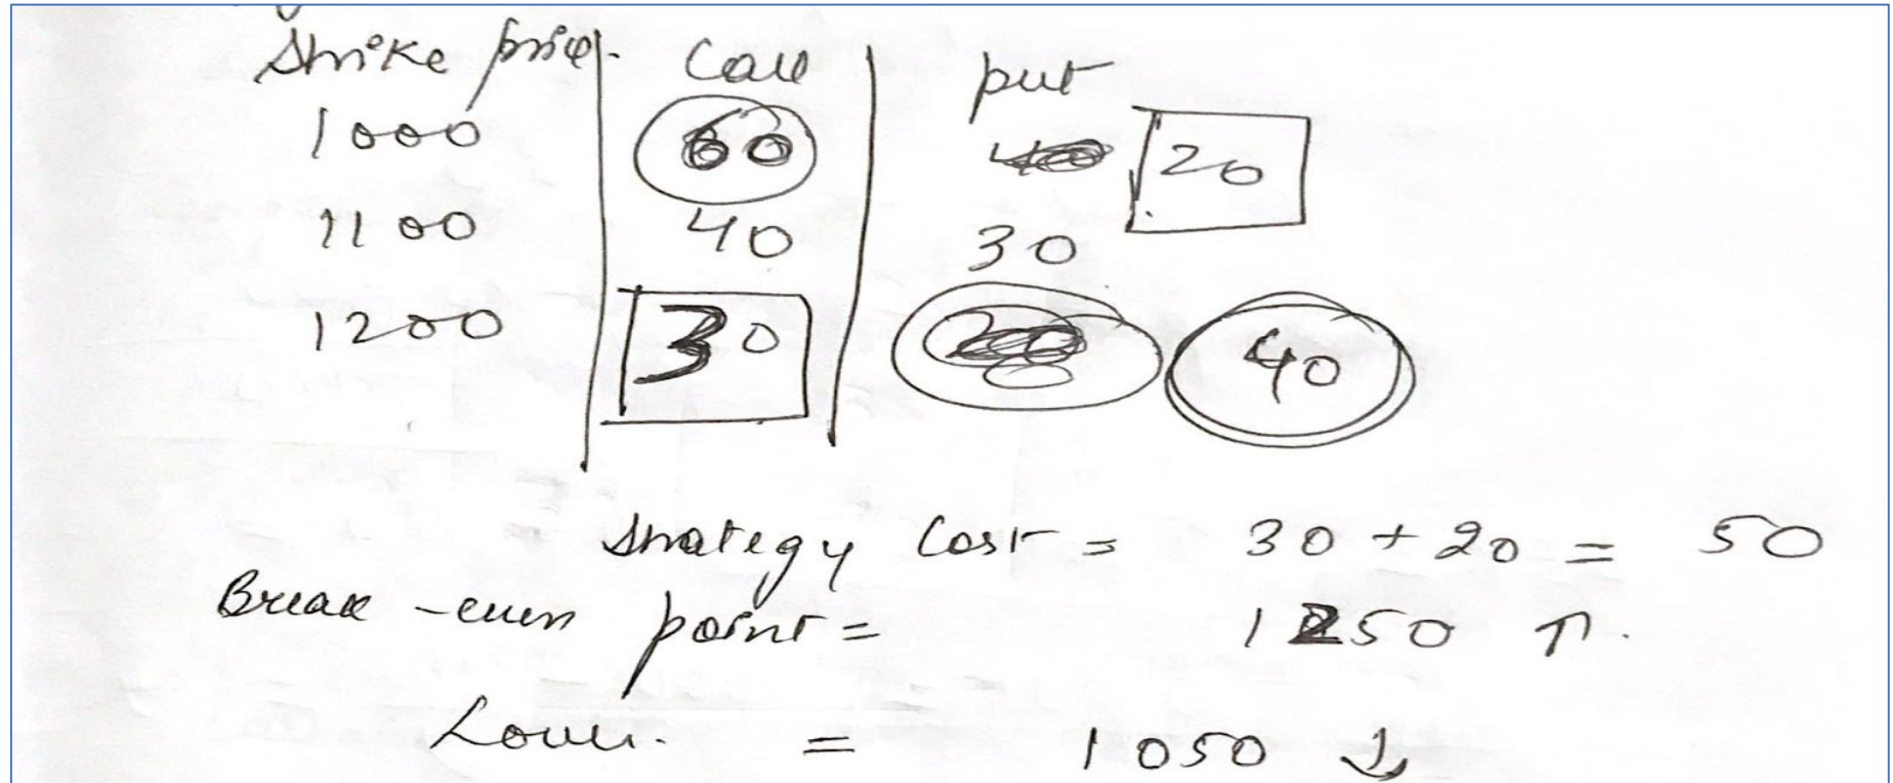 Strike price. Call put
1000 60 40 20
1100 40 30
1200 30 40
Strategy Cost = 30 + 20 = 50
Break-even point = 1250 ↑.
Lower. = 1050 ↓